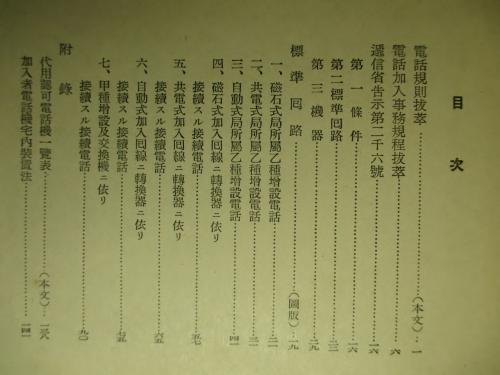 目次
電話規則拔萃……(本文)…一
電話加入事務規程拔萃……六
遞信省告示第二千六號……一六
第一條件……一六
第二標準回路……二三
第三機器……二九
標準回路……(圖版)…一九
一、磁石式局所屬乙種增設電話……二一
二、共電式局所屬乙種增設電話……三一
三、自動式局所屬乙種增設電話……四一
四、磁石式加入回線ニ轉換器ニ依リ
接續スル接續電話……五七
五、共電式加入回線ニ轉換器ニ依リ
接續スル接續電話……六五
六、自動式加入回線ニ轉換器ニ依リ
接續スル接續電話……七五
七、甲種增設及交換機ニ依リ
接續スル接續電話……九〇
附錄
代用認可電話機一覽表……(本文)…
加入者電話機宅內裝置法……